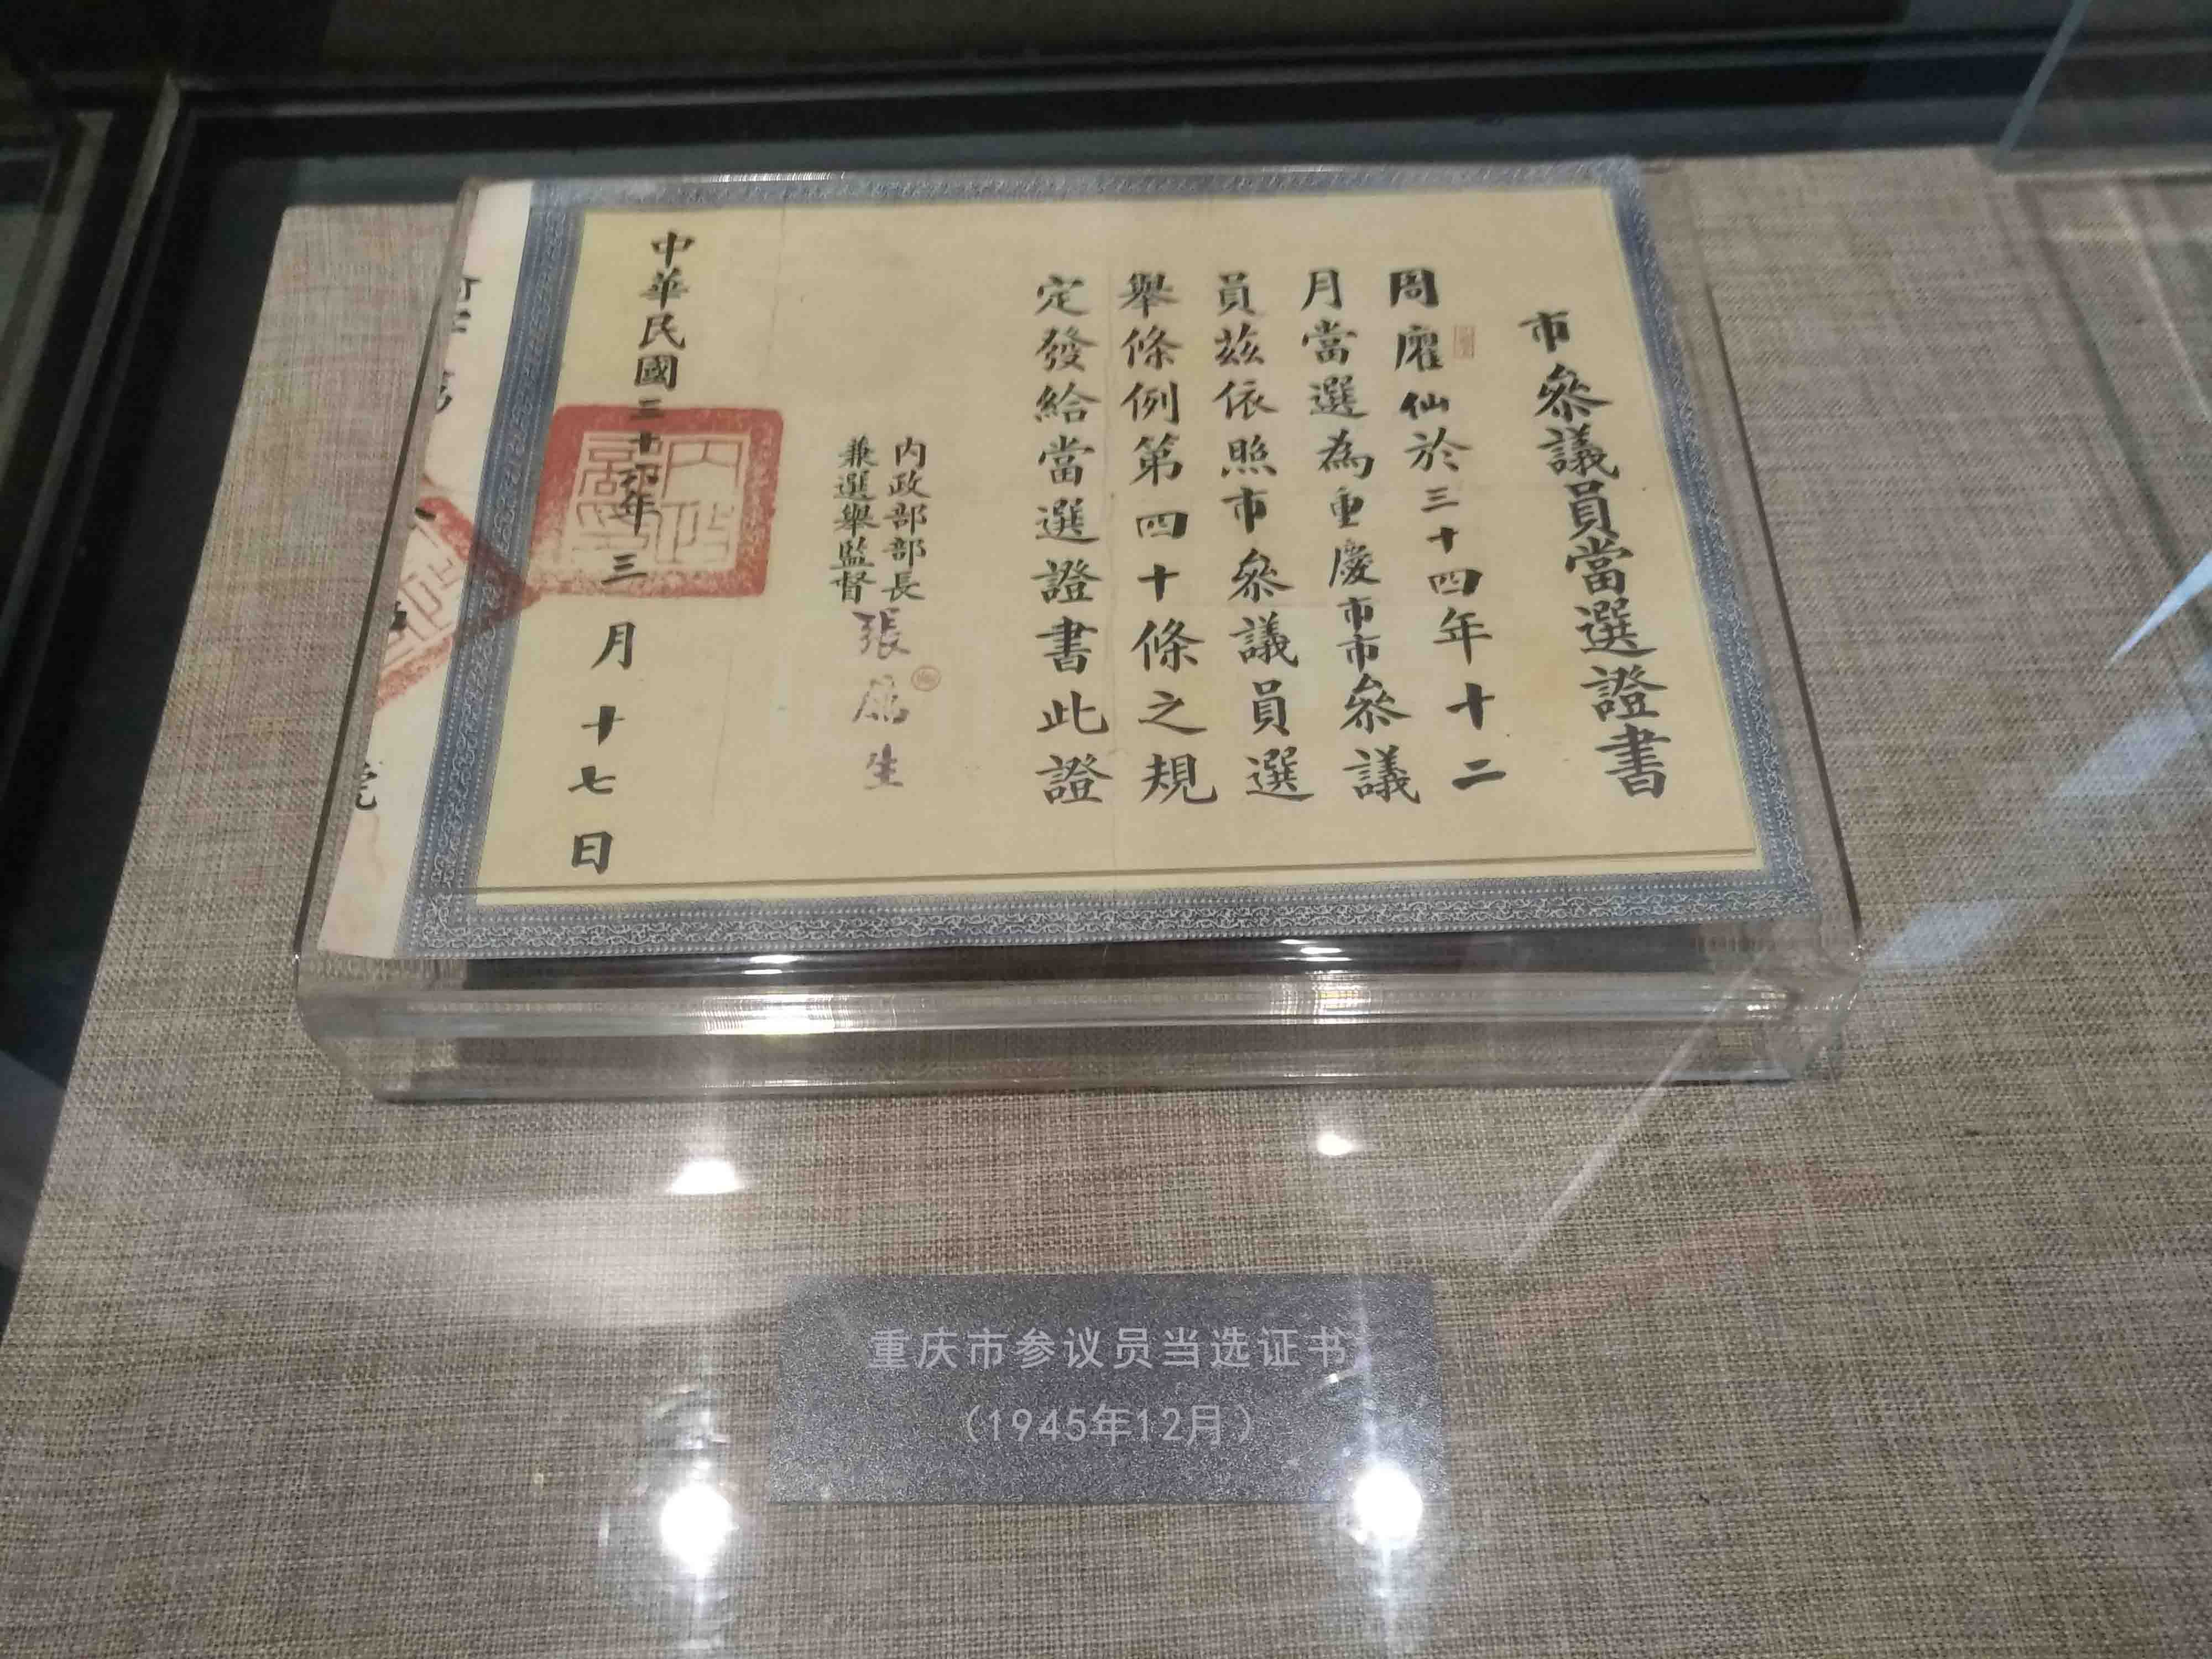 市參議員當選證書
周仙於三十四年十二
月當選為重慶市市參議
員茲依照市參議員選
舉條例第四十條之規
定發給當選證書此證
內政部部長
兼選舉監督
張厲生
中華民國三十年三月十七日
內政部印
重庆市参议员当选证书
（1945年12月）